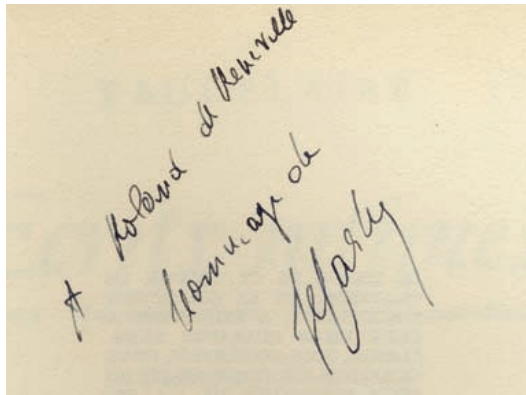 A Roland de Reneville
hommage de